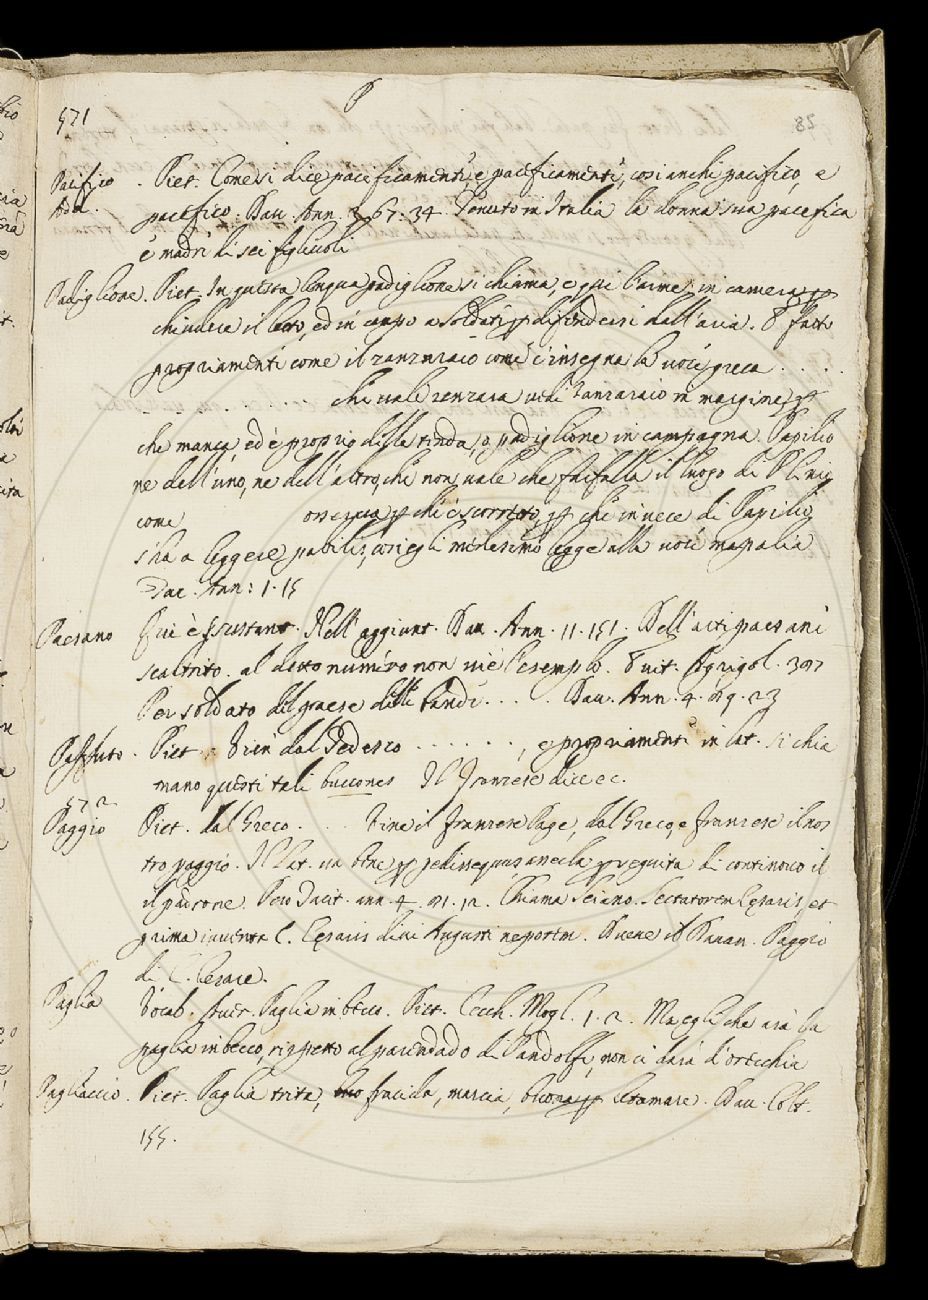 P
571
85
Pacifico . Piet. Come si dice paceficamente, e pacificamente, così anche pacifico, e
Add. pacefico. Dau. Ann. 3. 67: 34. Tenuto in Italia la donna sua pacefica
e madre di sei figliuoli
Padiglione. Piet. In questa lingua padiglione si chiama, e quel arnie, in camera p
chiudere il letto, ed in campo a soldati p difendersi dall'aria. E fatto
propriamente come il zanzaraio come c'insegna la voce greca . . . .
che vale zenzara vedi Zanzaraio in margine, p
che manca, ed è proprio della tenda, o padiglione in campagna. Papilio
ne dell'uno, ne dell'altro, che non vale che farfalla il luogo di Plinio
come osseruai p che è scorretto, p che in vece di Papilio
s'ha a leggere pabilis, così egli medesimo legge alla voce mapalia
Tac. Ann: 1. 15
Paesano Qui è Sustant. Nell'aggiunt. Dau. Ann. 11. 151. Dell'arti paesani
scaltrito. al detto numero non u'è l'esemplo. Vit. Agrigol. 397
Per soldato del paese delle bande . . . . Dau. Ann. 4. 89. 23
Paffuto. Piet. Vien dal Tedesco . . . . . . , e propriamente in lat. si chia
mano questi tali buccones Il Franzese dice ec.
572
Paggio Piet. dal Greco . . . . Viene il Franzese Page, dal Greco, e franzese il nos
tro paggio. Il Lat. va bene p pedissequus, anecla p seguita di continouo il
il padrone. Però Tacit. ann. 4. 81. 12. Chiama Seiano. Sectatorem Cesaris, et
prima iuuenta C. Cesaris diui Augusti nepotem. Dicene il Danan. Paggio
di C. Cesare.
Paglia Vocab. Auer. Paglia in becco. Piet. Cecch. Mogl. 1. 2. Ma egli che arà la
paglia in becco, rispetto al parendado di Pandolfo, non ci darà d'orecchia
Pagliaccio. Piet. Paglia trita, fracida, marcia, buona p letamare. Dau. Colt.
155.